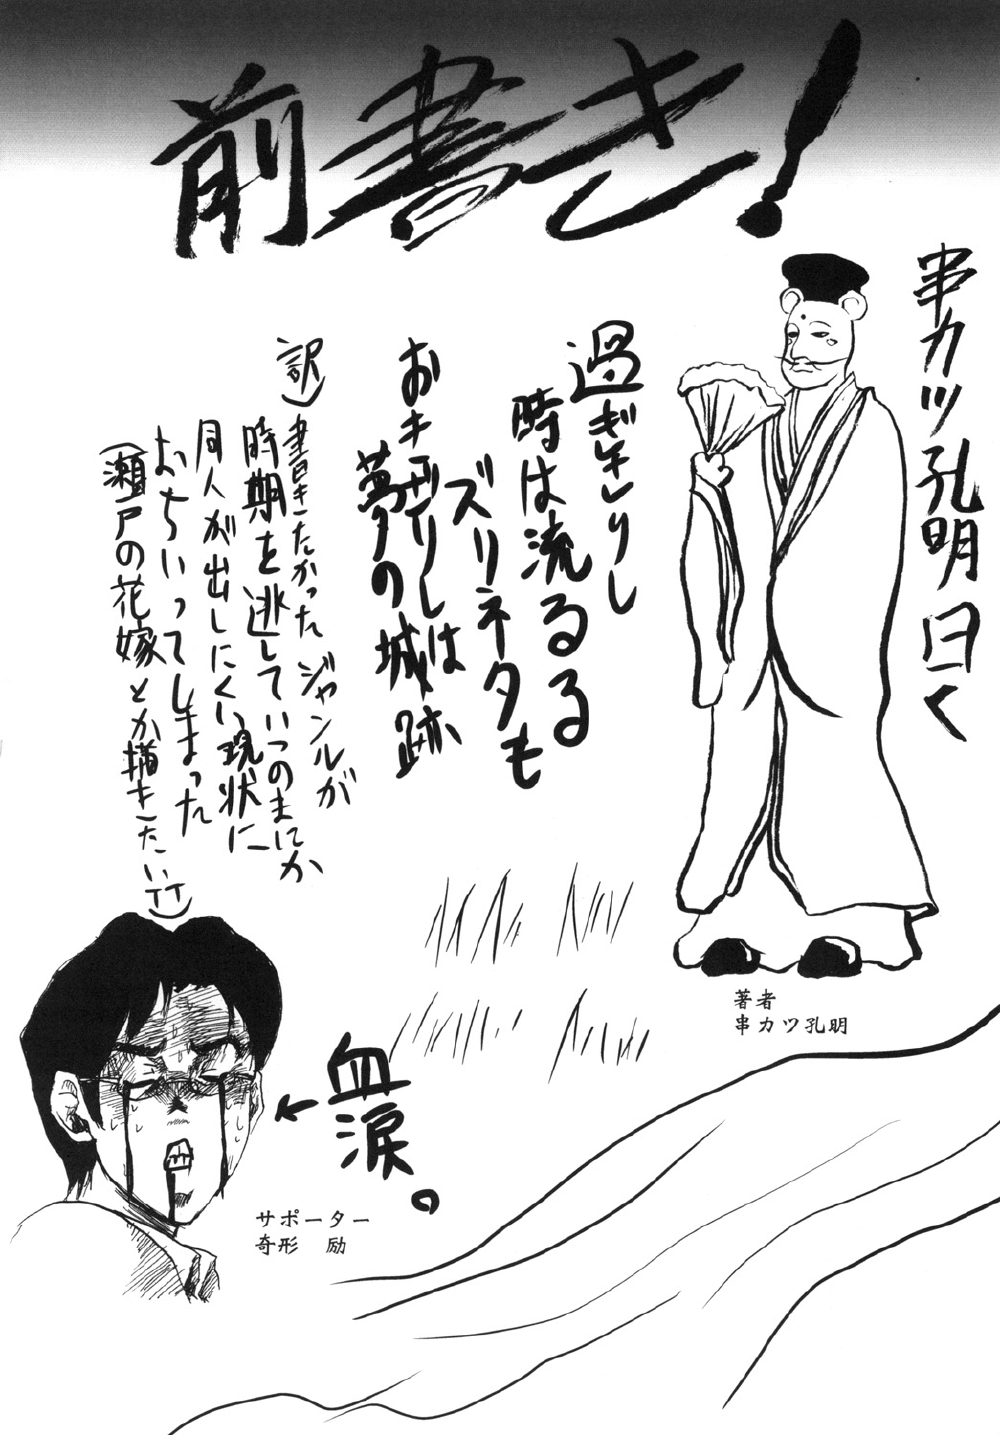 前書き!
串カツ孔明曰く
過ぎさりし
時は流るる
ズリネタも
おき去りしは
夢の城跡
訳)書きたかったジャンルが
時期を逃していつのまにか
同人が出しにくい現状に
おちいってしまった
(瀬戸の花嫁とか描きたい竹)
著者
串カツ孔明
血涙。
サポーター
奇形 励